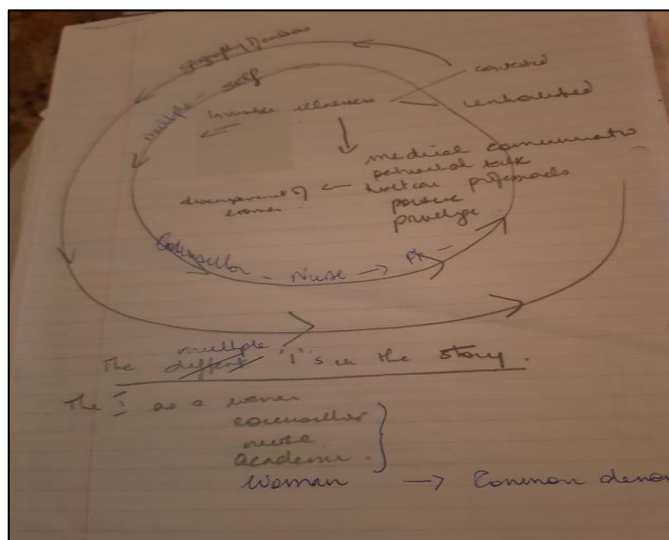 multiple - self
Invisible illnesses
contested
medical communicatio
patriarchal talk
professionals
privilege
women
Counsellor - Nurse → Ph -
The different multiple 'I's in the story.
The I as a woman
counsellor
nurse
academic
woman → Common denom